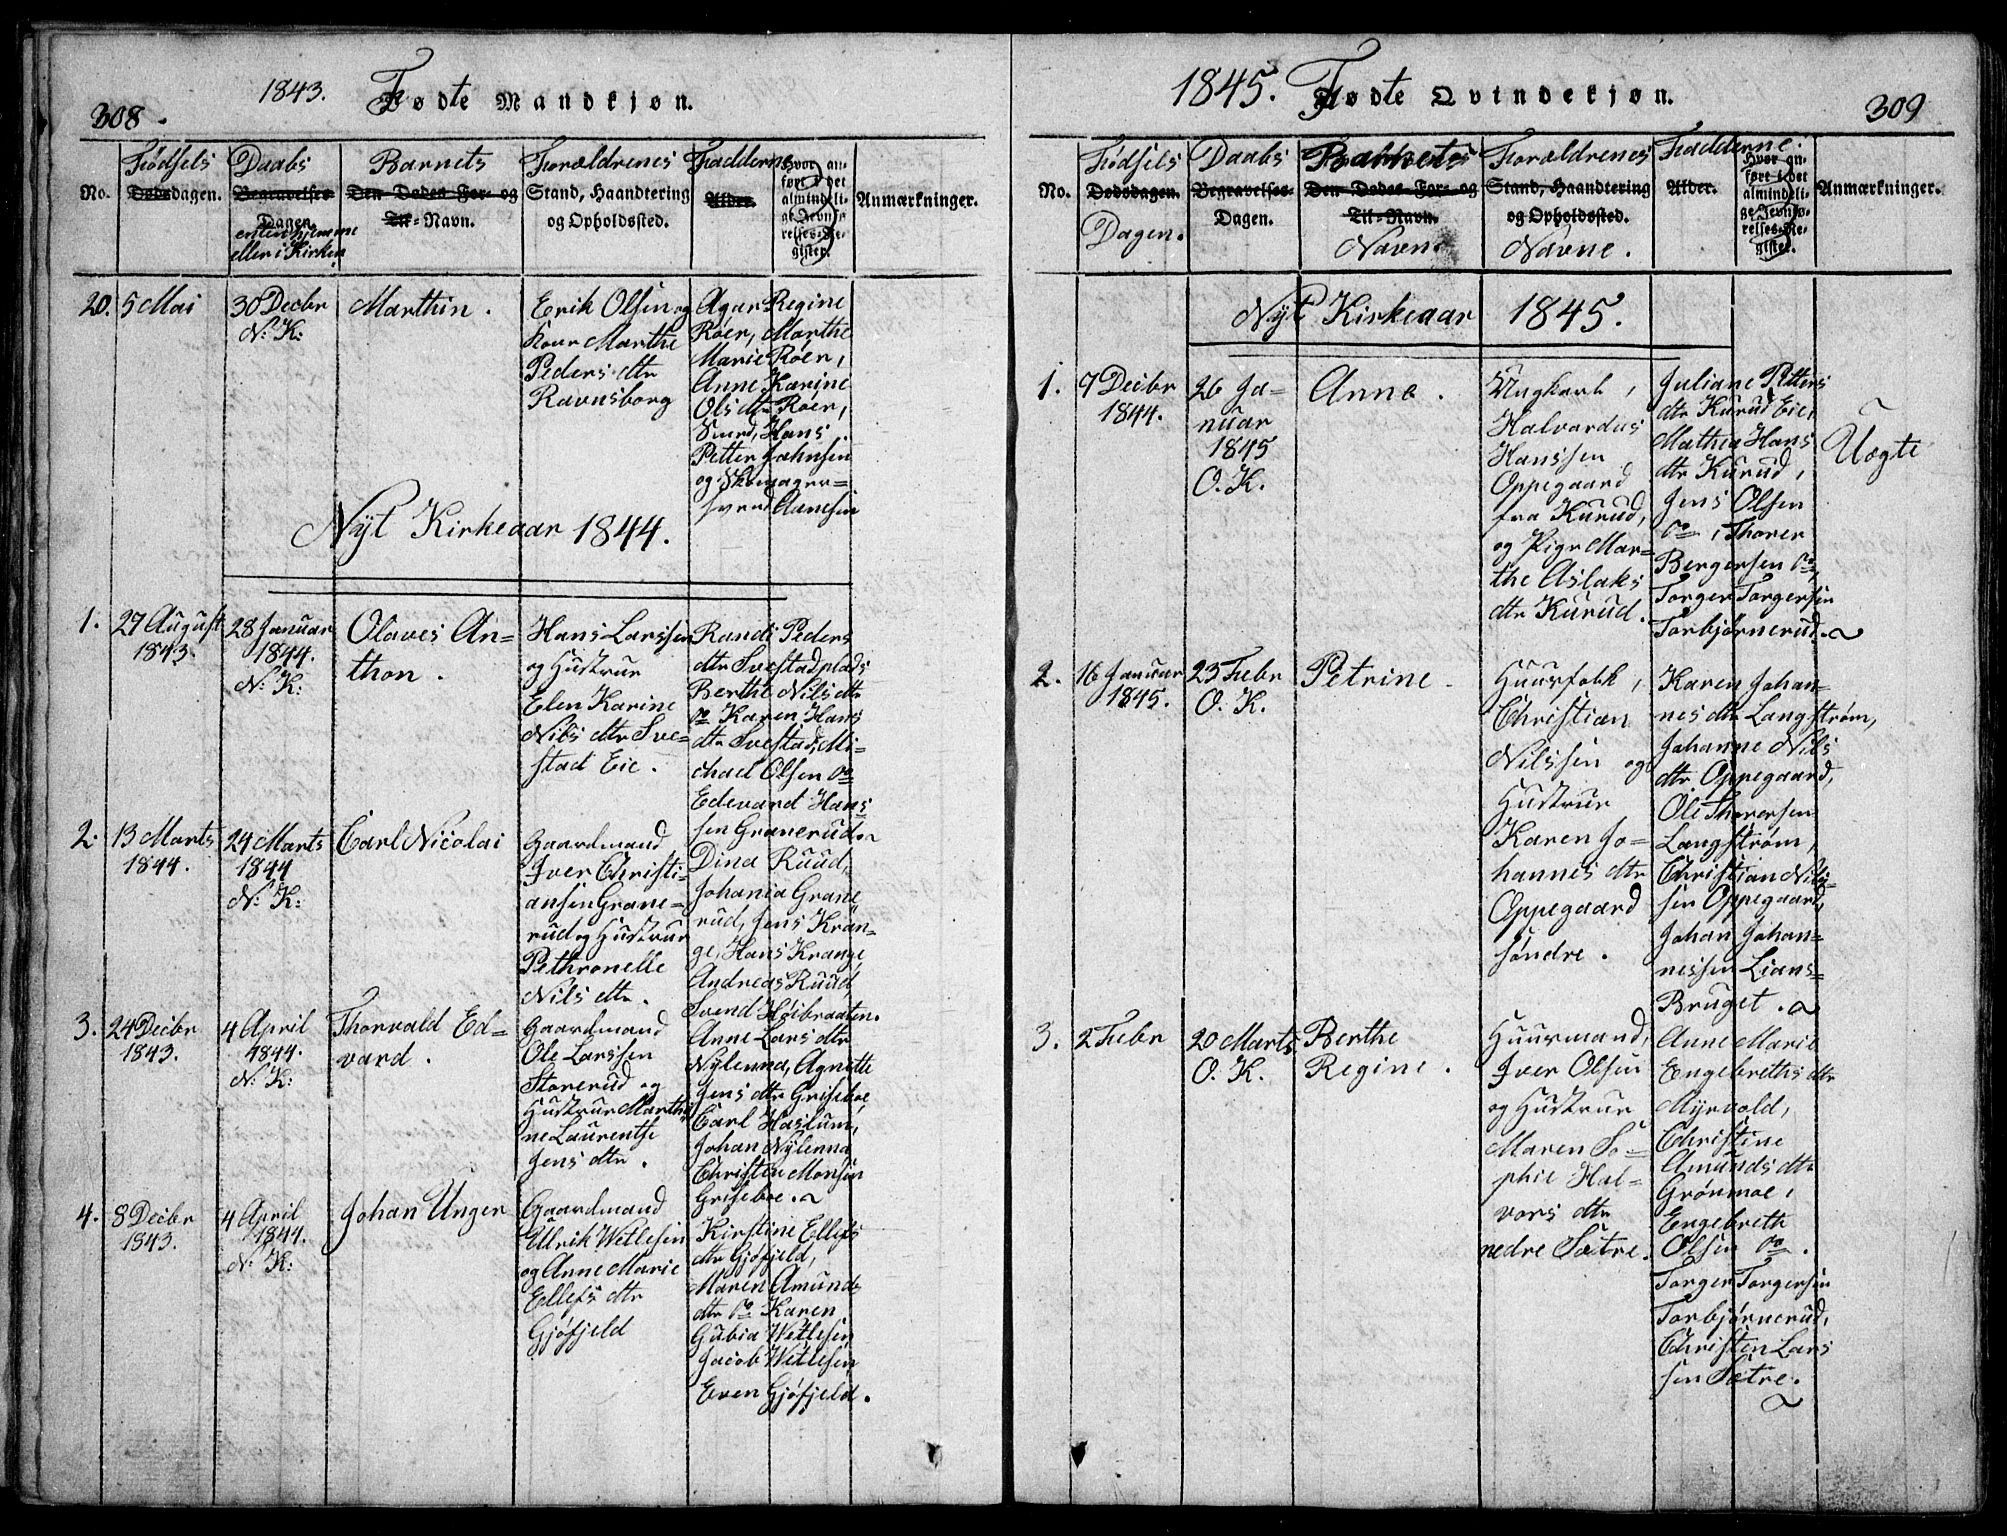 308.
1843. Fødte Mandkjøn.
No.
Fødsels
Dødsdagen.
Daabs
Begravelses-
Dagen.
enten hjemme
eller i Kirken
Barnets
Den Dødes For- og
Til-Navn.
Forældrenes
Stand, Haandtering
og Opholdssted.
Fadderne
Alder.
Hvor an-
ført i det
almindeli-
ge Jevnfø-
relses-Re-
gister.
Anmærkninger.
20. 5 Mai
30 Decbr
N: K:
Marthin.
Erik Olsen og
Kone Marthe
Peders dtr
Ravnsborg
Agar Regine
Røer, Marthe
Marie Røer,
Anne Karine
Ols dtr Røer,
Smed, Hans
Petter Jahnsen
og Skomager-
svend Clamsen
Nyt Kirkeaar 1844.
1. 27 August
1843.
28 Januar
1844.
N: K:
Olaves An-
thon.
Hans Larssen
og Hustrue
Elen Karine
Nils dtr Sve-
stad Eie.
Randi Peders
dtr Svestadplads
Berthe Nils dtr
do Karen Hans
dtr Svestad, Mi-
chael Olsen do
Edevard Hans
sen Granerud
2. 13 Marts
1844.
24 Marts
1844
N: K:
Carl Nicolai
Gaardmand
Iver Christi-
ansen Grane-
rud og Hustrue
Pethronelle
Nils dtr.
Dina Ruud,
Johania Grane
rud, Jens Kran-
ge, Hans Krange,
Andreas Ruud
Svend Høibraaten.
3. 24 Decbr
1843.
4 April
1844.
N: K:
Thorvald Ed-
vard.
Gaardmand
Ole Larssen
Storerud og
Hustrue Marthi
ne Laurentse
Jens dtr.
Anne Lars dtr
Nylenna, Agnette
Jens dtr Griseboe,
Carl Haslum,
Johan Nylenna
Christen Monsen
Griseboe.
4. 8 Decbr
1843.
4 April
1844.
N: K:
Johan Unger
Gaardmand
Ellrik Wetlesen
og Anne Marie
Ellefs dtr
Gjøfjeld
Kirstine Ellefs
dtr Gjøfjeld,
Maren Amunds
dtr do Karen
Gubia Wetlesen,
Jacob Wetlesen,
Even Gjøfjeld.
1845. Fødte Qvindekjøn.
309
No.
Fødsels
Dødsdagen.
Dagen.
Daabs
Begravelses-
Dagen.
Barnets
Den Dødes For- og
Til-Navn.
Navn.
Forældrenes
Stand, Haandtering
og Opholdssted.
Navne.
Fadderne.
Alder.
Hvor an-
ført i det
almindeli-
ge Jevnfø-
relses-Re-
gister.
Anmærkninger.
Nyt Kirkeaar 1845.
1. 7 Decbr
1844.
26 Ja-
nuar
1845
O. K.
Anne.
Ungkarl,
Halvardus
Hanssen
Oppegaard
fra Kurud,
og Pige Mar-
the Aslaks
dtr Kurud.
Juliane Petters
dtr Kurud Eie,
Mathea Hans
dtr Kurud,
Jens Olsen
do, Thorer
Bergersen do,
Torger Torgersen
Torbjørnerud.
Uægte
2. 16 Januar
1845.
23 Febr
O. K.
Petrine
Huusfolk,
Christian
Nilssen og
Hustrue
Karen Jo-
hannes dtr
Oppegaard
søndre.
Karen Johan-
nes dtr Langstrøm,
Johanne Nils
dtr Oppegaard,
Ole Thorersen
Langstrøm,
Christian Nils-
sen Oppegaard,
Johan Johan-
nessen Lians-
Bruget.
3. 2 Febr
20 Marts
O. K.
Berthe
Regine.
Huusmand,
Iver Olsen
og Hustrue
Maren So-
phie Hal-
vors dtr
nedre Sætre.
Anne Marie
Engebreths dtr
Myrvold,
Christine
Amunds dtr
Grønmoe,
Engebreth
Olsen do.
Torger Torgersen
Torbjørnerud,
Christen Lars
sen Sætre.